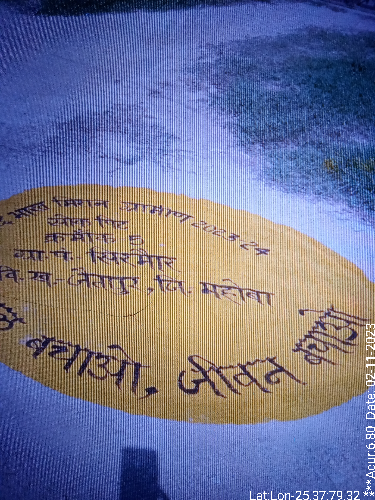 भारत मिशन ग्रामीण 2023-24
सोक पिट
क्रमाँक 5
ग्रा.पं. खिरमार
वि.ख.-जैतपुर, जि. महोबा
बचाओ, जीवन बचाओ
Lat:Lon-25.37:79.32 ***Acur:6.80 Date: 02-11-2023